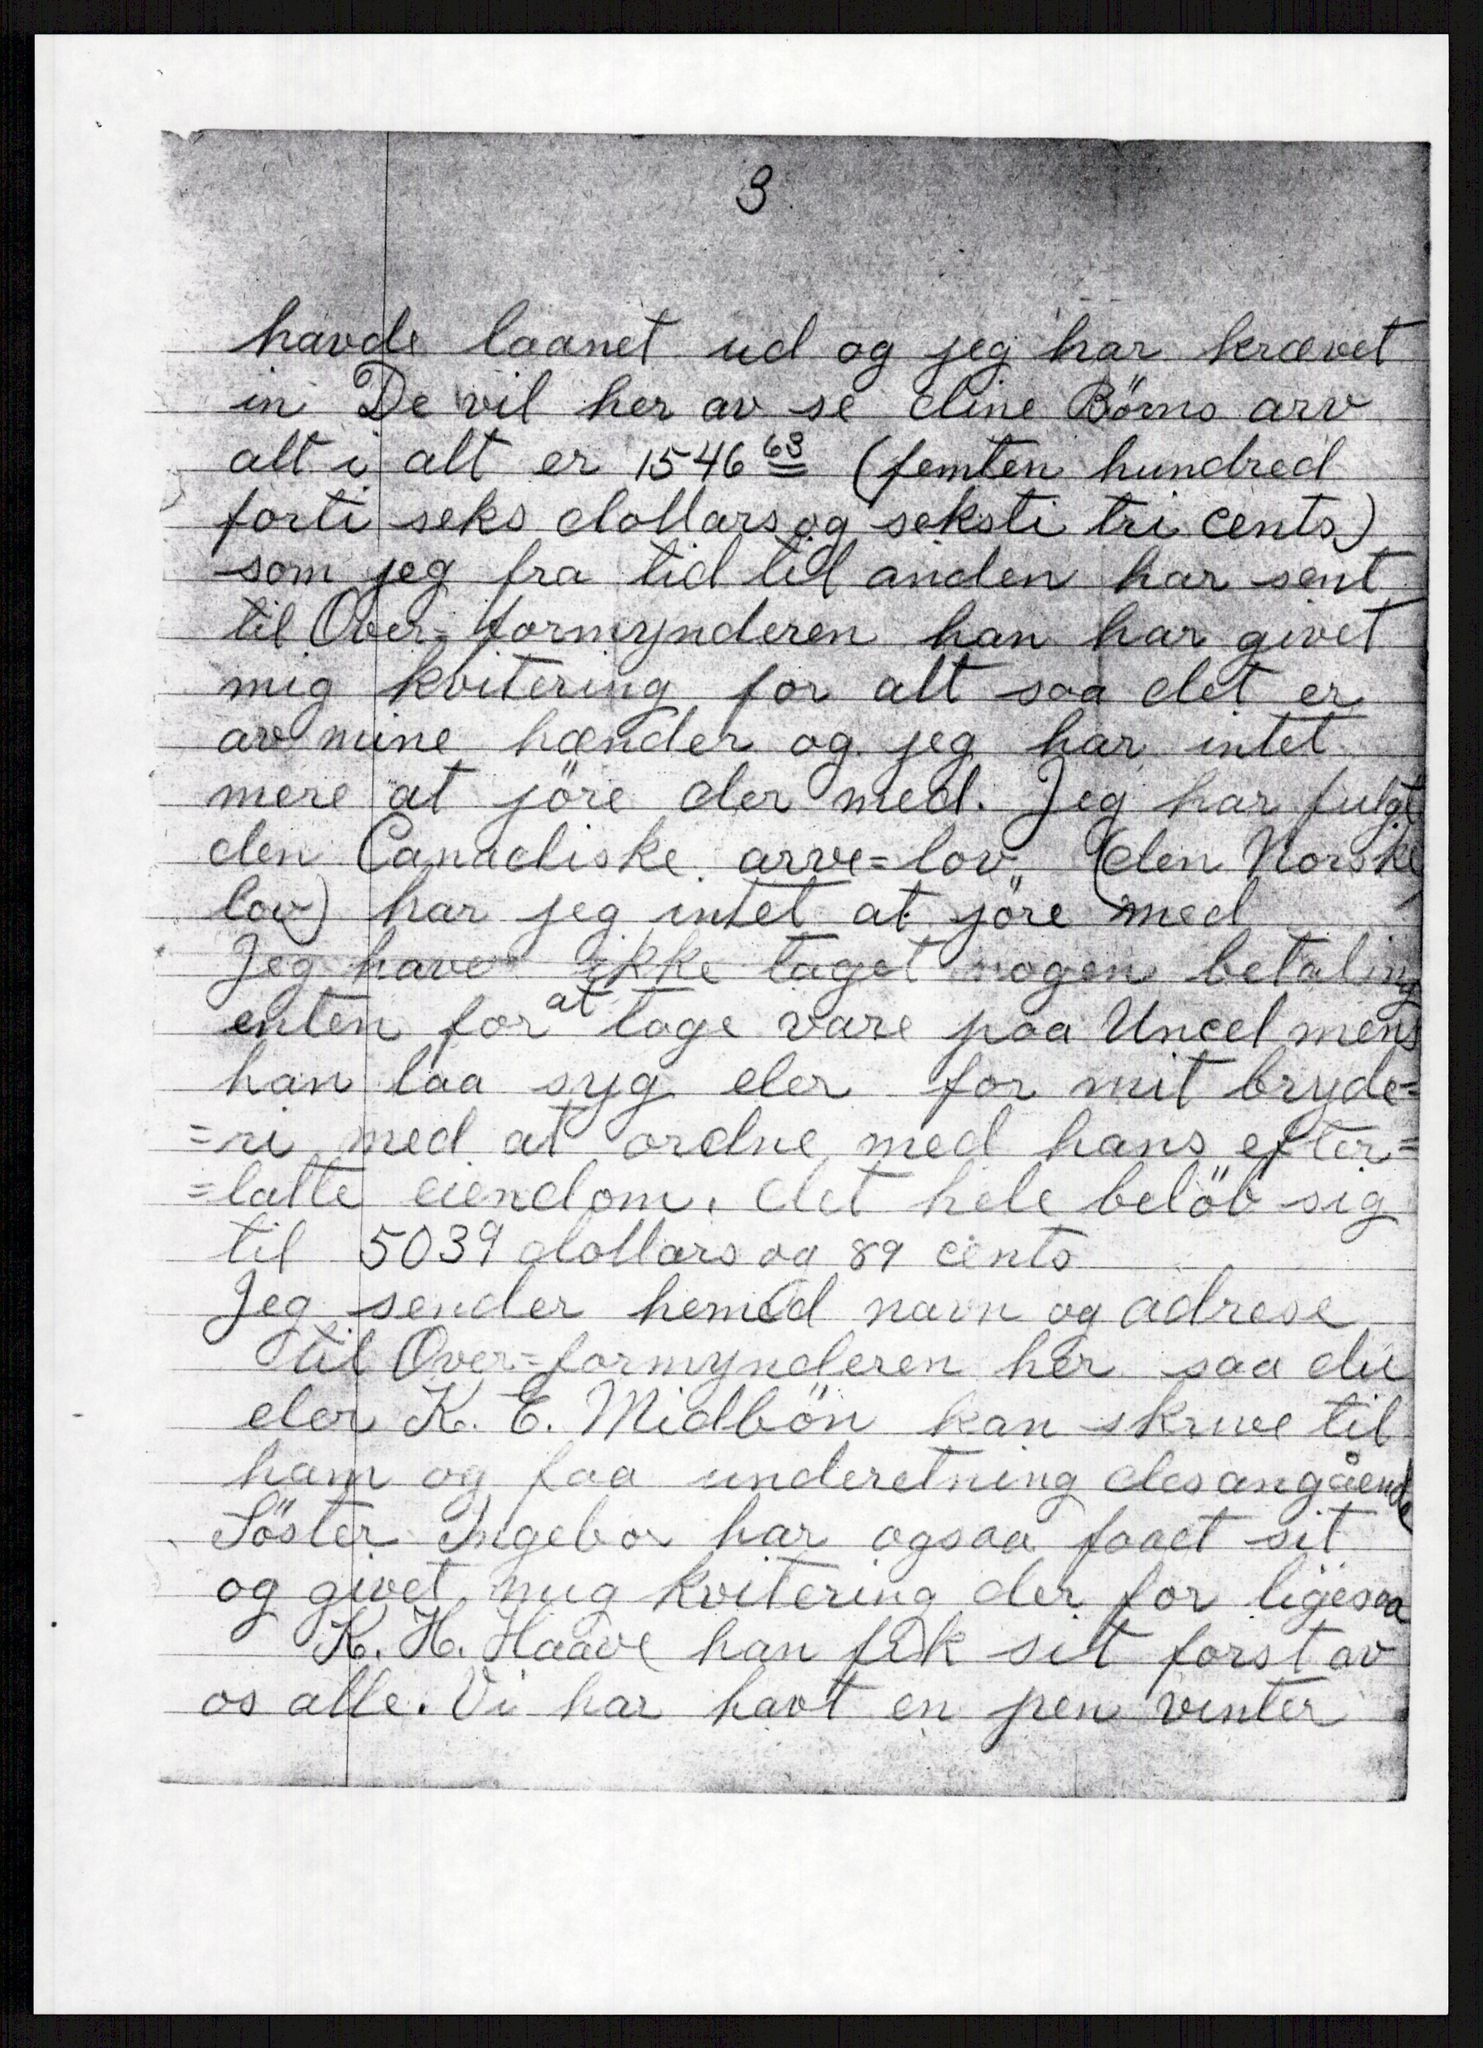 3
havde laanet ud og jeg har krævet
in De vil her av se dine Börns arv
alt i alt er 1546 63 (femten hundred
forti seks dollars og seksti tri cents)
som jeg fra tid til anden har sent
til Over=formynderen han har givet
mig kvitering for alt saa det er
av mine hænder og jeg har intet
mere at jöre der med. Jeg har fulgt
den Canadiske arve=lov, (den Norske
lov) har jeg intet at jöre med
Jeg have ikke taget nogen betaling
enten for at tage vare paa Uncel mens
han laa syg eler for mit bryde=
=ri med at ordne med hans efter=
=latte eiendom. det hele belöb sig
til 5039 dollars og 89 cents
Jeg sender hemed navn og adrese
til Over=formynderen her saa du
eler K. E. Midbön kan skrive til
ham og faa underetning desangående
Söster Ingebor har ogsaa faaet sit
og givet mig kvitering der for ligesaa
K. H. Haave han fik sit forst av
os alle. Vi har havt en pen vinter